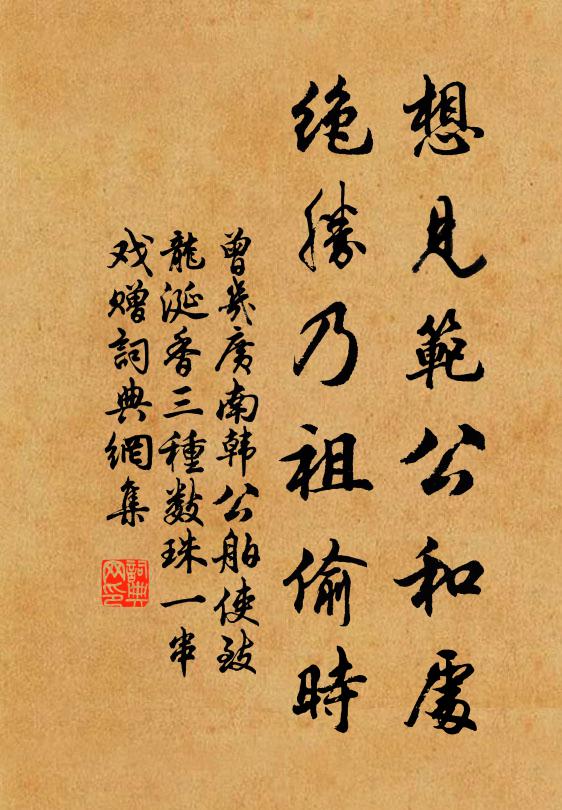 想見範公和處
絶勝乃祖偷時
曾幾廣南韩公舶使致
龍涎香三種数珠一串
戏赠詞典網集
詞典網印